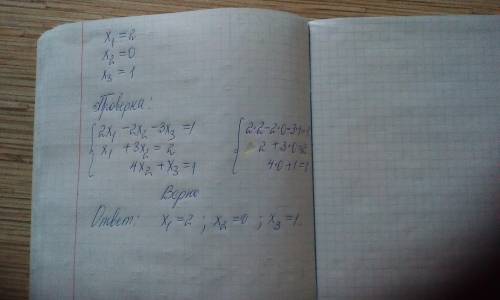 x₁ = 2
x₂ = 0
x₃ = 1
Проверка:
2x₁ - 2x₂ - 3x₃ = 1
x₁ + 3x₂ = 2
4x₂ + x₃ = 1
2·2 - 2·0 - 3·1 = 1
2 + 3·0 = 2
4·0 + 1 = 1
Верно
Ответ: x₁ = 2 ; x₂ = 0 ; x₃ = 1.